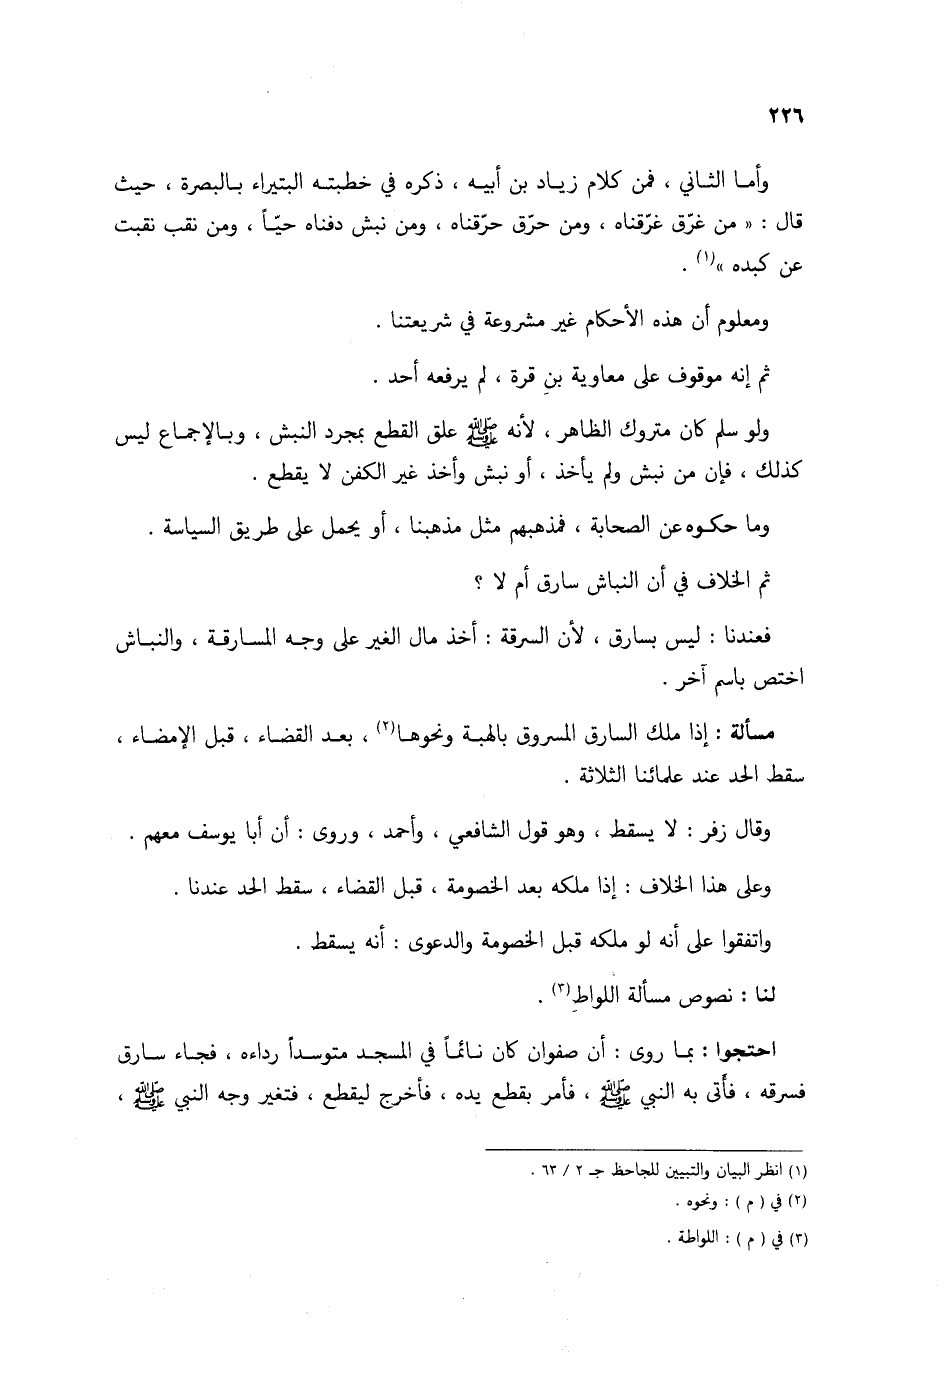 ٢٢٦
وأما الثاني ، فمن كلام زياد بن أبيه ، ذكره في خطبته البتيراء بالبصرة ، حيث
قال : « من غرّق غرّقناه ، ومن حرّق حرّقناه ، ومن نبش دفناه حيّاً ، ومن نقب نقبت
عن كبده »(١) .
ومعلوم أن هذه الأحكام غير مشروعة في شريعتنا .
ثم إنه موقوف على معاوية بن قرة ، لم يرفعه أحد .
ولو سلم كان متروك الظاهر ، لأنه ﷺ علق القطع بمجرد النبش ، وبالإجماع ليس
كذلك ، فإن من نبش ولم يأخذ ، أو نبش وأخذ غير الكفن لا يقطع .
وما حكوه عن الصحابة ، فمذهبهم مثل مذهبنا ، أو يحمل على طريق السياسة .
ثم الخلاف في أن النباش سارق أم لا ؟
فعندنا : ليس بسارق ، لأن السرقة : أخذ مال الغير على وجه المسارقة ، والنباش
اختص باسم آخر .
مسألة : إذا ملك السارق المسروق بالهبة ونحوها(٢) ، بعد القضاء ، قبل الإمضاء ،
سقط الحد عند علمائنا الثلاثة .
وقال زفر : لا يسقط ، وهو قول الشافعي ، وأحمد ، وروى : أن أبا يوسف معهم .
وعلى هذا الخلاف : إذا ملكه بعد الخصومة ، قبل القضاء ، سقط الحد عندنا .
واتفقوا على أنه لو ملكه قبل الخصومة والدعوى : أنه يسقط .
لنا : نصوص مسألة اللواط(٣) .
احتجوا : بما روى : أن صفوان كان نائماً في المسجد متوسداً رداءه ، فجاء سارق
فسرقه ، فأتى به النبي ﷺ ، فأمر بقطع يده ، فأخرج ليقطع ، فتغير وجه النبي ﷺ ،
(١) انظر البيان والتبيين للجاحظ جـ ٢ / ٦٣ .
(٢) في ( م ) : ونحوه .
(٣) في ( م ) : اللواطة .